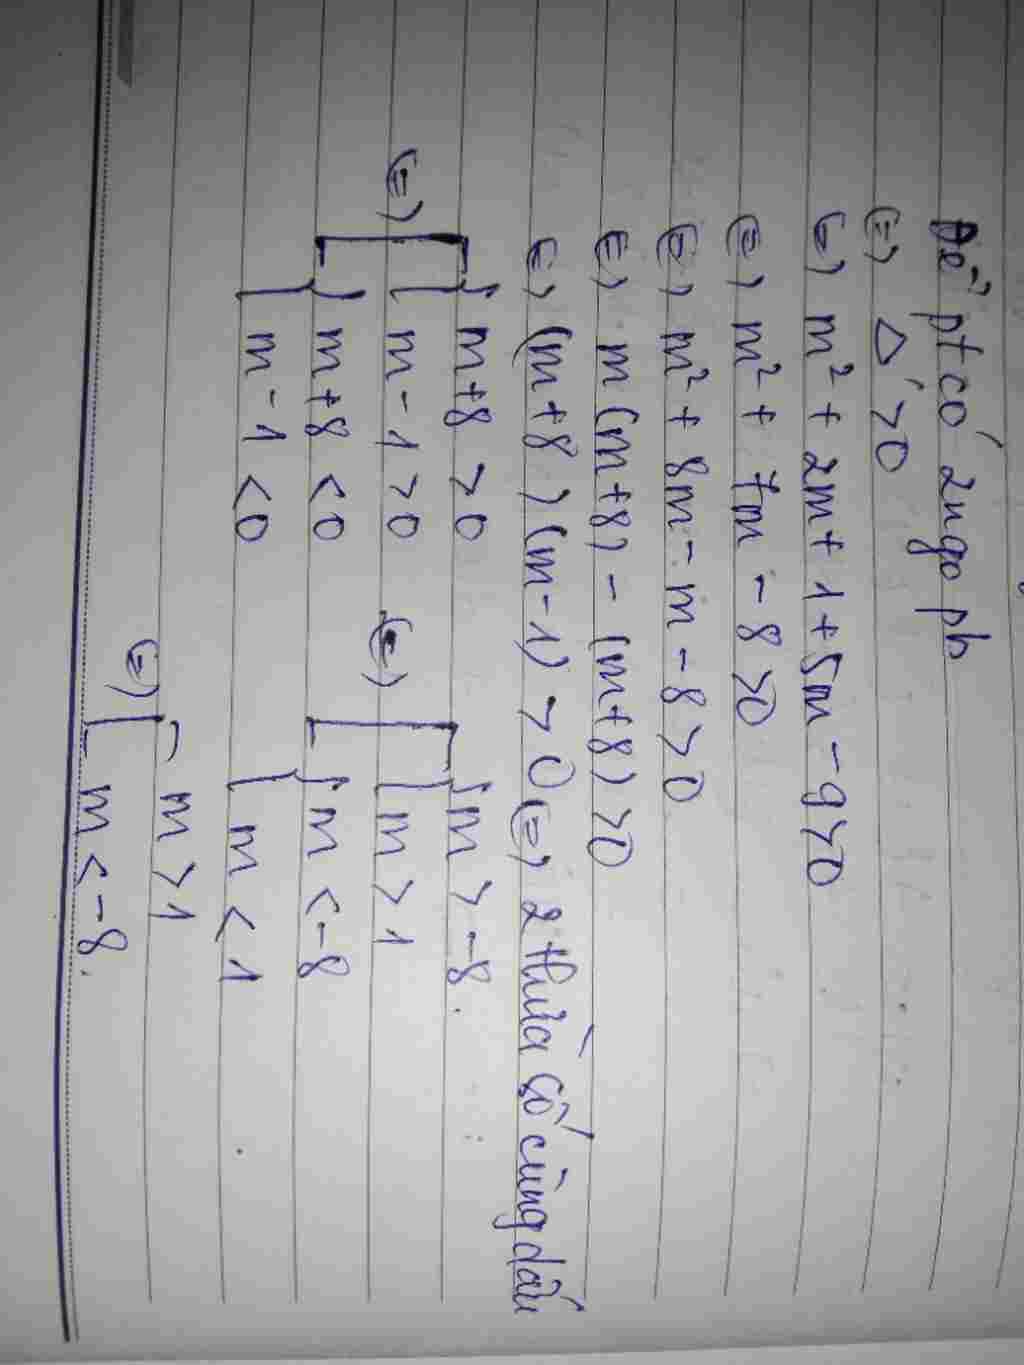 Để pt có 2 ngo pb
(=) Δ' > 0
(=) m² + 2m + 1 + 5m - 9 > 0
(=) m² + 7m - 8 > 0
(=) m² + 8m - m - 8 > 0
(=) m(m+8) - (m+8) > 0
(=) (m+8)(m-1) > 0 (=) 2 thừa số cùng dấu
{ m+8 > 0 { m > -8.
(=) [ { m-1 > 0 (=) [ { m > 1
{ m+8 < 0 { m < -8
{ m-1 < 0 { m < 1
(=) [ m > 1
m < -8.